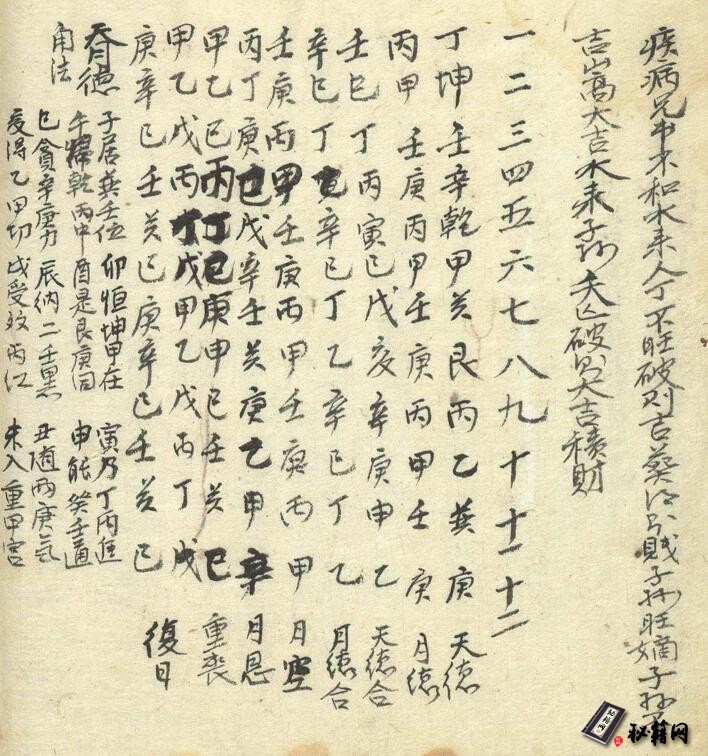 疾病兄弟不和水来人丁不旺破則吉葵則賤子孙旺嫡子孙不
吉山高大吉水来子孙夭亡破则大吉積財
一二三四五六七八九十十一十二
丁坤壬辛乾甲癸艮丙乙巽庚 天德
丙甲壬庚丙甲壬庚丙甲壬庚 月德
壬巳丁丙寅己戊亥辛庚申乙 天德合
辛巳丁乙辛巳丁乙辛巳丁乙 月德合
壬庚丙甲壬庚丙甲壬庚丙甲 月空
丙丁庚己戊辛壬癸庚乙甲辛 月恩
甲乙巳丙丁巳庚甲巳壬癸巳 重喪
甲乙戊丙丁戊甲乙戊丙丁戊
庚辛巳壬癸巳庚辛巳壬癸巳 復日
天月德
用法
子居巽壬伍 卯恒坤甲在 寅乃丁丙進
午歸乾丙中 酉是艮庚同 申能癸壬通
巳貪辛庚力 辰納二壬黑 丑随两庚氣
亥得乙甲助 戌受双丙江 未入重甲宫
秘籍网